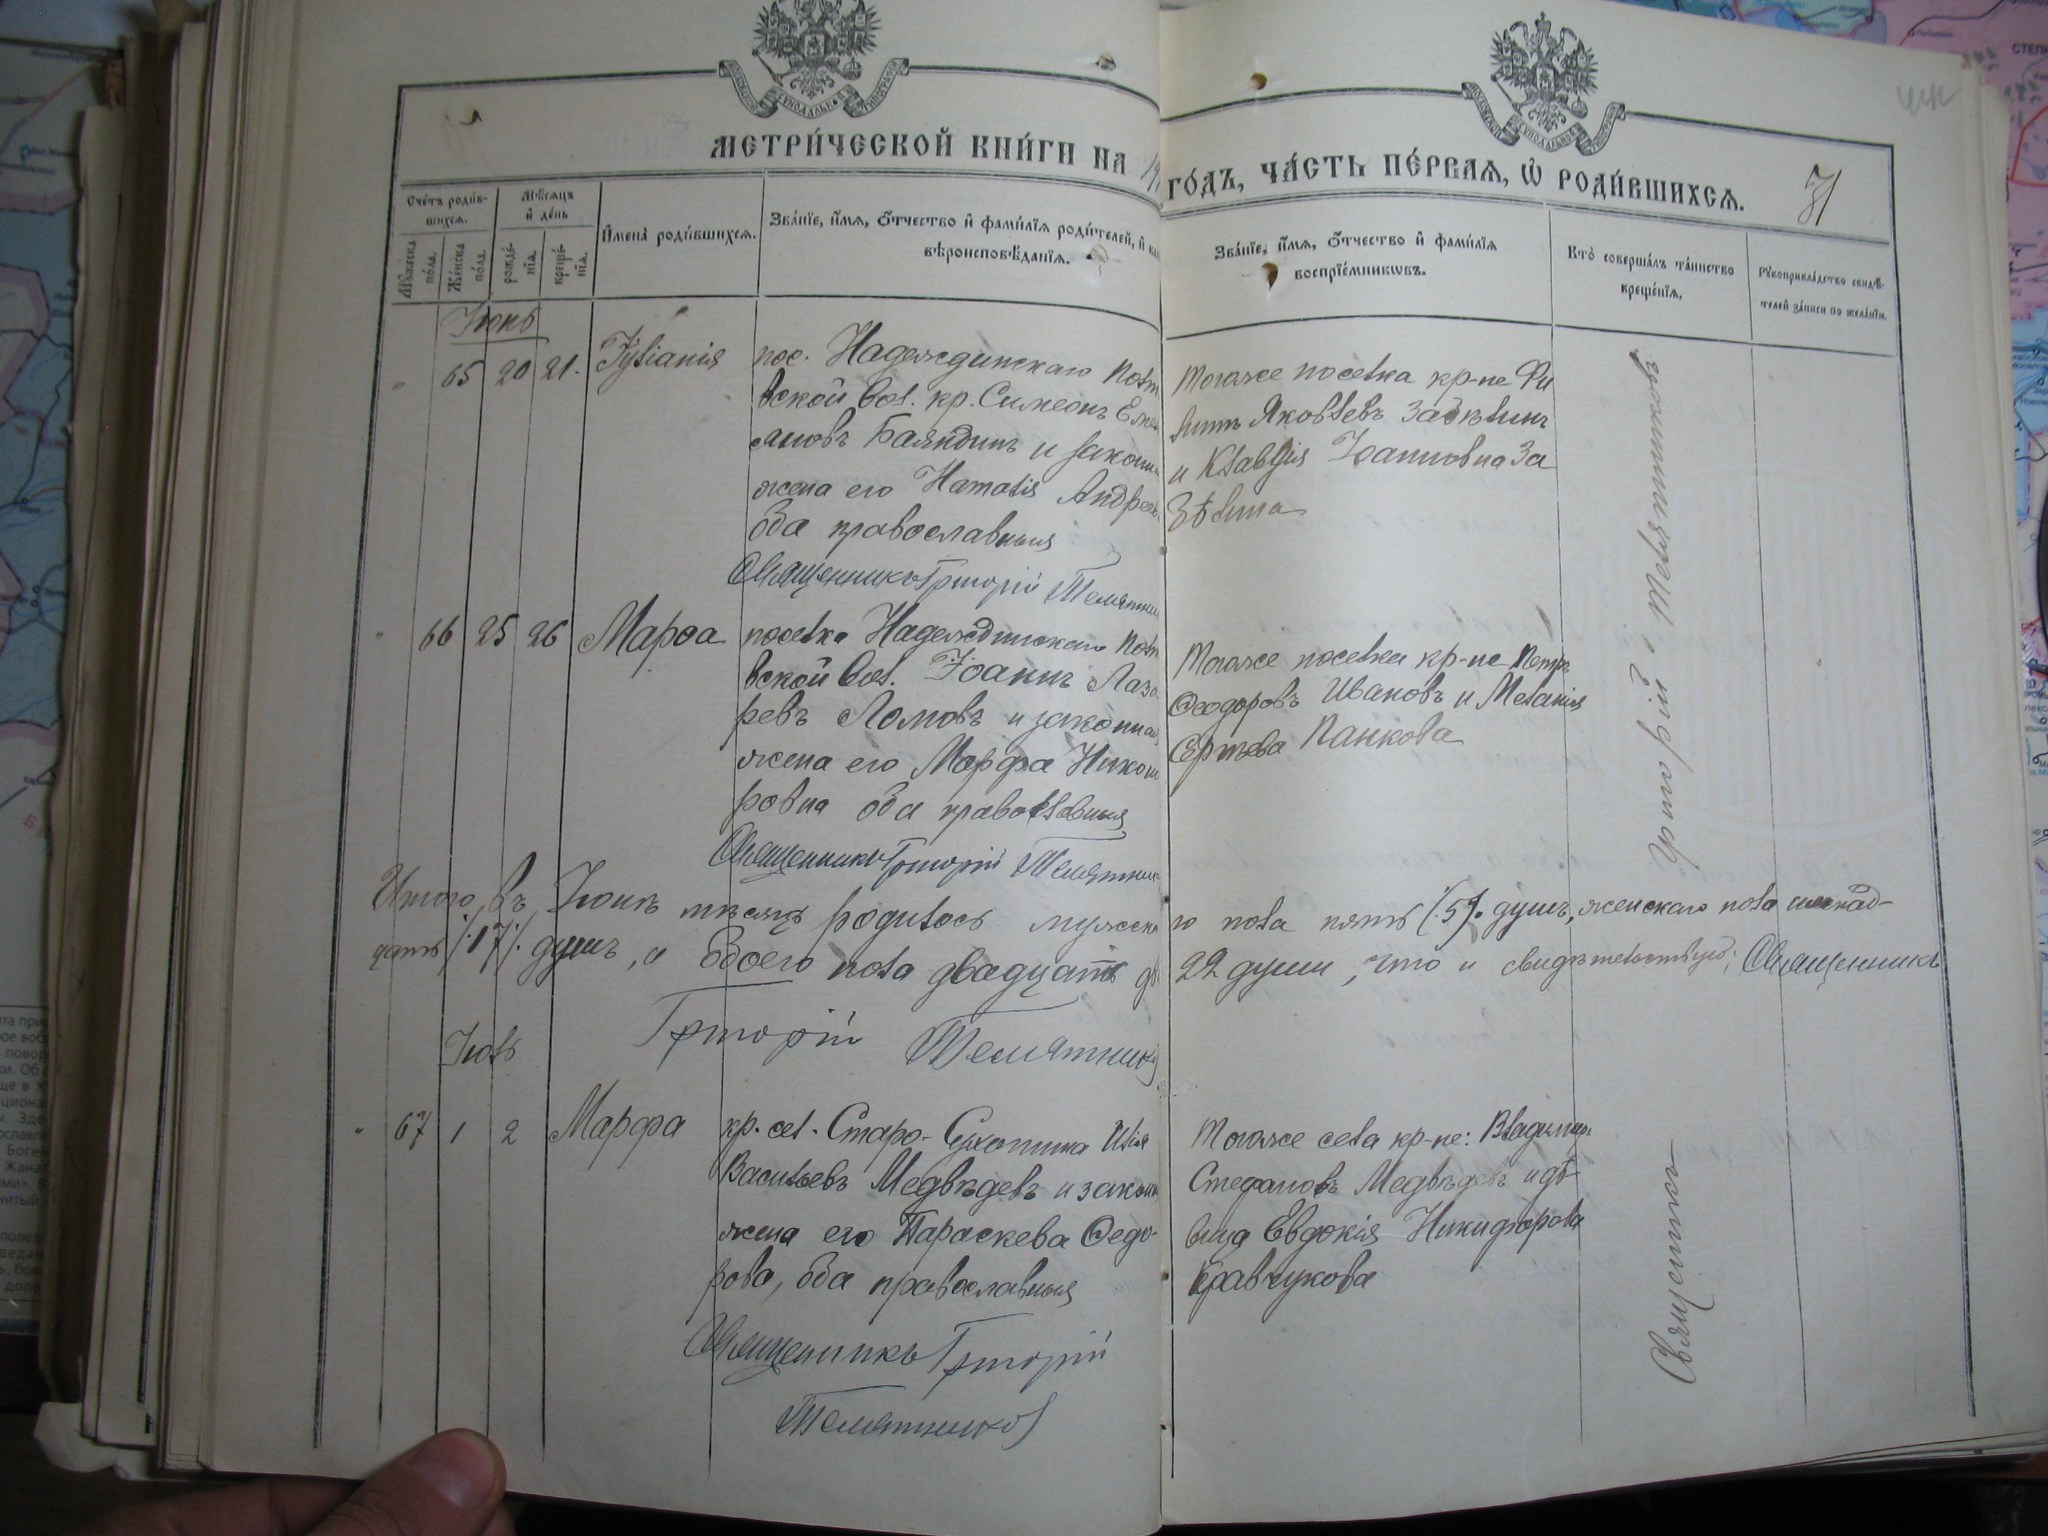 МЕТРИ́ЧЕСКОЙ КНИ́ГИ НА 19
ГО́ДЪ, ЧА́СТЬ ПЕ́РВАЯ, Ѡ РОДИ́ВШИХСЯ.
71
Сче́тъ роди́в-
шихся.
Мѣ́сяцъ
и де́нь
Му́жеска
по́ла.
Же́нска
по́ла.
рожде́-
нїя.
креще́-
нїя.
Имена̀ роди́вшихся.
Зва́нїе, и́мя, о́тчество и фами́лїя роди́телей, и как
вѣроисповѣ́данїя.
Зва́нїе, и́мя, о́тчество и фами́лїя
воспрїе́мниковъ.
Кто̀ соверша́лъ та́инство
креще́нїя.
Рукоприкла́дство свидѣ́-
телей за́писи по жела́нїю.
Іюнь
" 65 20 21. Іуліанія
пос. Надеждинскаго Полт
вской вол. кр. Симеонъ Емел
ановъ Баяндинъ и закон
жена его Наталія Андреев
оба православныя
Священникъ Григорій Телятник
Тогоже поселка кр-не Фи
липъ Яковлевъ Зазѣлинъ
и Клавдія Іоанновна За
зѣлина
" 66 25 26 Марѳа
поселка Надеждинскаго Полт
вской вол. Іоаннъ Лаза
ревъ Ломовъ и законная
жена его Марфа Никон
ровна оба православныя
Священникъ Григорій Телятник
Тогоже поселка кр-не Петръ
Ѳеодоровъ Ивановъ и Меланія
Сергѣева Панкова
Итого въ Іюнѣ мѣсяцѣ родилось мужска
го пола пять (5). душъ, женскаго пола семнад-
цать /.17/. душъ, а обоего пола двадцать дв
22 души, что и свидѣтельствую: Священникъ
Григорій Телятников
Іюль
" 67 1 2 Марфа
кр. сел. Старо-Сухотина Илія
Васильевъ Медвѣдевъ и закон
жена его Параскева Ѳедо-
рова, оба православныя
Священникъ Григорій
Телятников
Тогоже села кр-не: Владимиръ
Степановъ Медвѣдевъ и дѣ
вица Евдокія Никифорова
Кравчукова
Священникъ
Григорій Телятниковъ